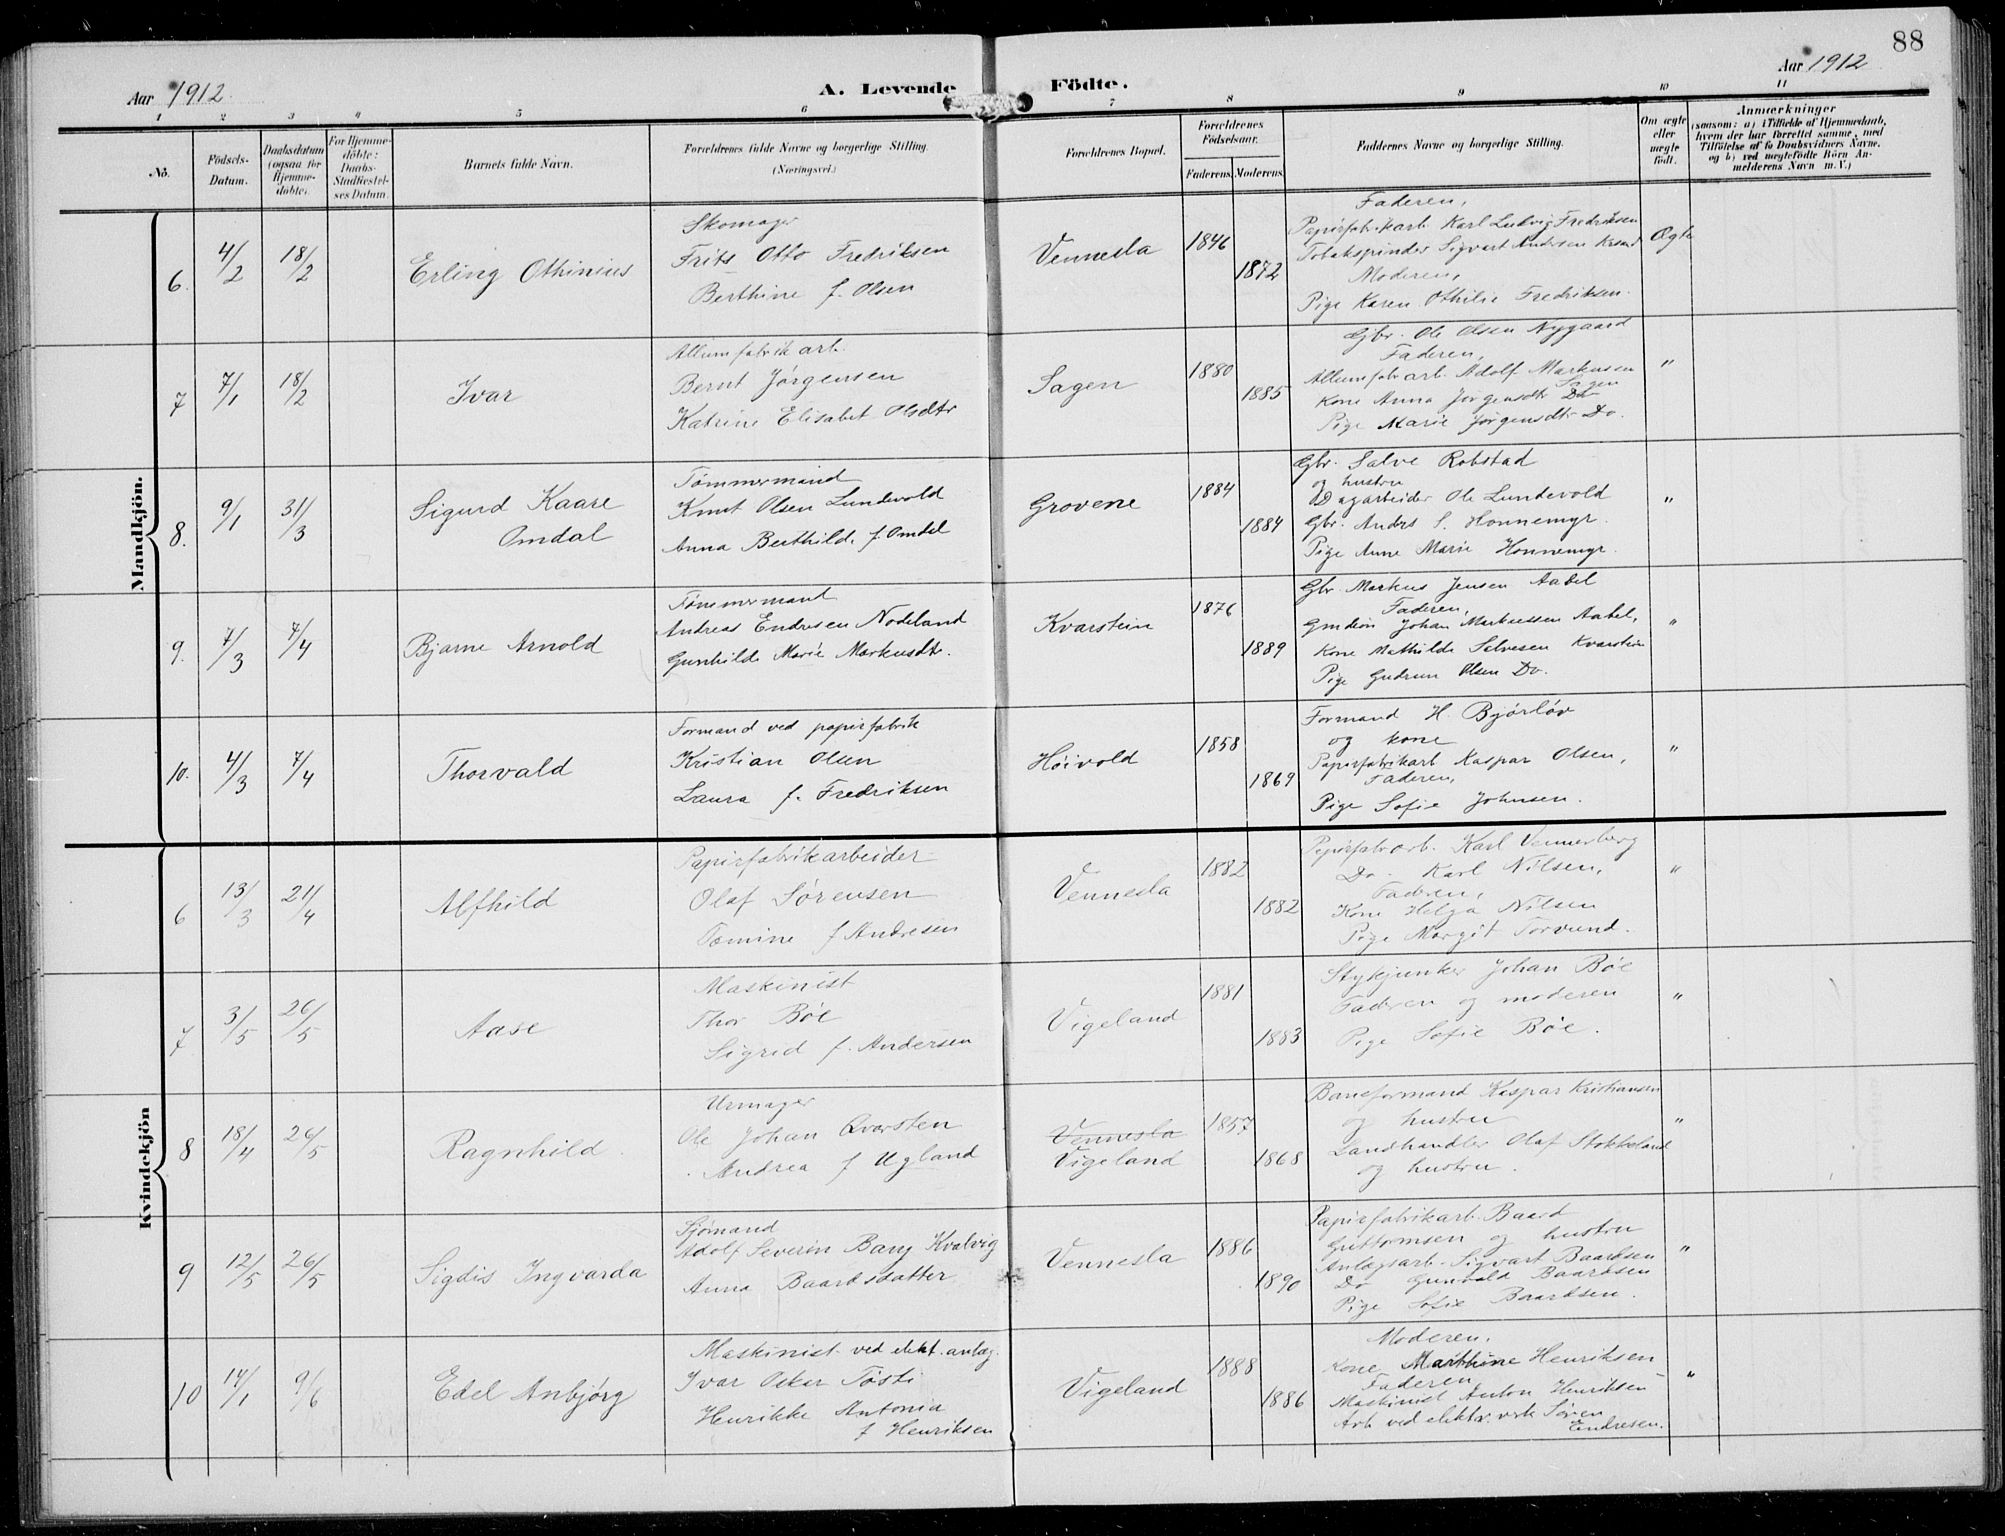 88
Aar 1912.
A. Levende Födte.
Aar 1912
1 2 3 4 5 6 7 8 9 10 11
No.
Födsels-
Datum.
Daabsdatum
(ogsaa for
Hjemme-
döbte).
For Hjemme-
döbte:
Daabs-
Stadfæstel-
ses Datum.
Barnets fulde Navn.
Forældrenes fulde Navne og borgerlige Stilling.
(Næringsvei.)
Forældrenes Bopæl.
Forældrenes
Födselsaar.
Faderens. Moderens.
Faddernes Navne og borgerlige Stilling.
Om ægte
eller
uægte
født.
Anmærkninger
(saasom: a) i Tilfælde af Hjemmedaab,
hvem der har forrettet samme, med
Tilföielse af to Daabsvidners Navne,
og b) ved uægtefödte Börn An-
melderens Navn m. V.)
Mandkjön.
6.
4/2
18/2
Erling Othinius
Skomager
Frits Otto Fredriksen
Berthine f. Olsen
Vennesla
1846
1872
Faderen,
Papirfabrikarb. Karl Ludvig Fredriksen
Tobakspinder Sigvart Andersen
Moderen,
Pige Karen Othilie Fredriksen.
Ægte
7
7/1
18/2
Ivar
Allumfabrik arb.
Bernt Jørgensen
Katrine Elisabet Olsdtr
Sagen
1880
1885
Gbr. Ole Olsen Nygaard
Faderen,
Allumfabr arb. Adolf Markussen
Sagen
Kone Anna Jørgensdtr Do
Pige Marie Jørgensdtr Do.
"
8.
9/1
31/3
Sigurd Kaare
Omdal
Tømmermand
Knut Olsen Lundevold
Anna Berthilde f. Omdal
Grovene
1884
1884
Gbr. Salve Robstad
og hustru
Dagarbeider Ole Lundevold
Gbr. Andrs S. Honnemyr.
Pige Anne Marie Honnemyr.
"
9.
7/3
7/4
Bjarne Arnold
Tømmermand
Andreas Endresen Nodeland
Gunhilde Marie Markusdtr.
Kvarstein
1876
1889
Gbr. Markus Jensen Aabel
Faderen,
Johan Markussen Aabel,
Kone Mathilde Salvesen Kvarstein
Pige Gudrun Olsen Do.
"
10.
4/3
7/4
Thorvald
Formand ved papirfabrik
Kristian Olsen
Laura f. Fredriksen
Høivold
1858
1869
Formand H. Bjørløv
og kone
Papirfabrikarb Kaspar Olsen,
Faderen,
Pige Sofie Johnsen.
"
Kvindekjön
6
13/3
21/4
Alfhild
Papirfabrikarbeider
Olaf Sørensen
Tomine f Andresen
Vennesla
1882
1882
Papirfabr arb. Karl Vennerberg
Do. Karl Nilsen,
Faderen,
Kone Helga Nilsen
Pige Margit Torvund.
"
7
3/5
26/5
Aase
Maskinist
Thor Bøe
Sigrid f. Andersen
Vigeland
1881
1883
Stykjunker Johan Bøe
Faderen og moderen
Pige Sofie Bøe.
"
8
18/4
26/5
Ragnhild.
Urmager
Ole Johan Qvarsten
Andrea f Ugland
Vennesla
Vigeland
1857
1868
Baneformand Kaspar Kristiansen
og hustru
Landhandler Olaf Stokkeland
og hustru.
"
9
12/5
26/5
Sigdis Ingvarda
Sjømand
Adolf Severin Bang Kvalvig
Anna Baardsdatter
Vennesla
1886
1890
Papirfabrikarb. Baard
Guttormsen og hustru
Anlægsarb. Sigvart Baardsen
Do Gunvald Baardsen
Pige Sofie Baardsen.
"
10
14/1
9/6
Edel Anbjørg
Maskinist ved elekt. anlæg.
Ivar Oskar Tösti
Henrikke Antonia
f Henriksen
Vigeland
1888
1886
Moderen,
Kone Marthine Henriksen
Faderen
Maskinist Anton Henriksen
Arb ved elektr. verk Søren
Endresen.
"